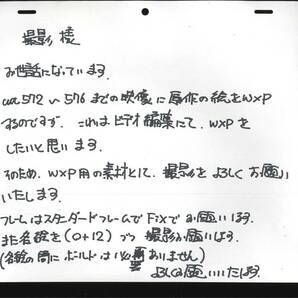 撮影様
お世話になっています.
cut 572〜576までの映像に原作の絵をWXP
するのですが. これはビデオ編集にて. WXPを
したいと思います.
そのため、WXP用の素材として. 撮影をよろしくお願い
いたします.
フレームはスタンダードフレームでFixでお願いします.
また各絵を(0+12)づつ 撮影お願いします.
(各絵の間にボールドは必要ありません)
よろしくお願いいたします.